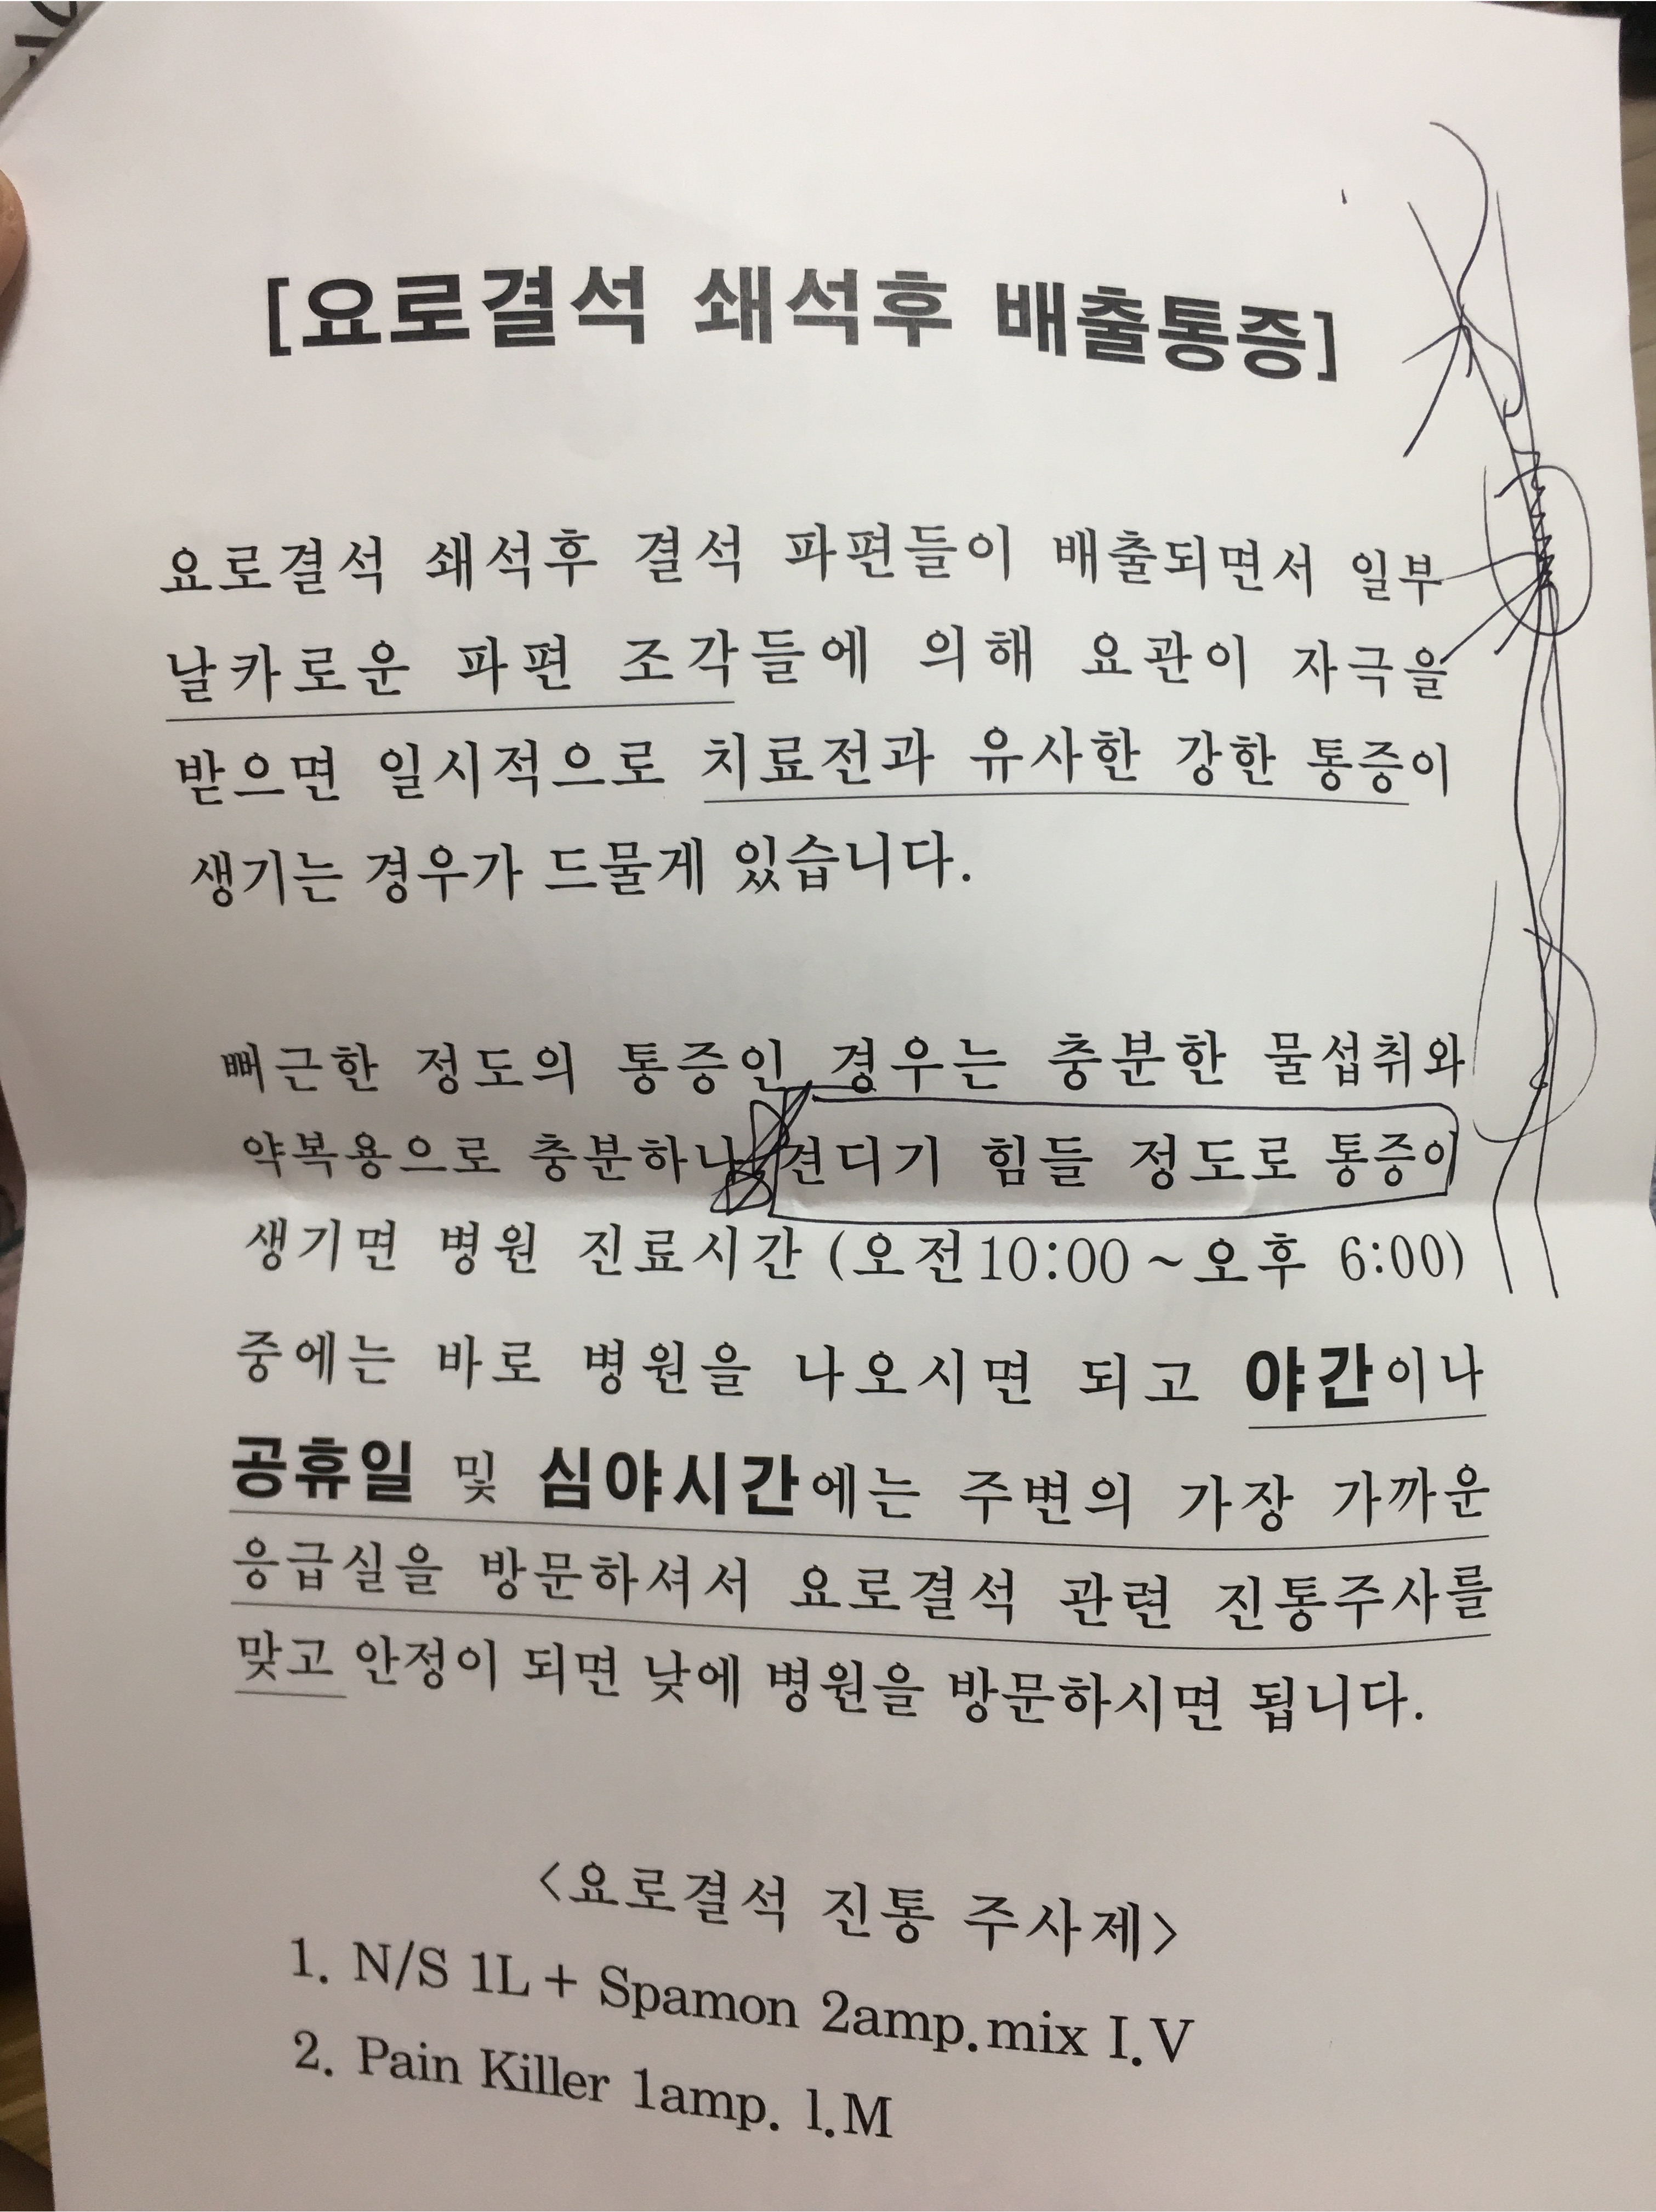 [요로결석 쇄석후 배출통증]
요로결석 쇄석후 결석 파편들이 배출되면서 일부
날카로운 파편 조각들에 의해 요관이 자극을
받으면 일시적으로 치료전과 유사한 강한 통증이
생기는 경우가 드물게 있습니다.
뻐근한 정도의 통증인 경우는 충분한 물섭취와
약복용으로 충분하나 견디기 힘들 정도로 통증이
생기면 병원 진료시간 (오전10:00 ~ 오후 6:00)
중에는 바로 병원을 나오시면 되고 야간이나
공휴일 및 심야시간에는 주변의 가장 가까운
응급실을 방문하셔서 요로결석 관련 진통주사를
맞고 안정이 되면 낮에 병원을 방문하시면 됩니다.
<요로결석 진통 주사제>
1. N/S 1L + Spamon 2amp.mix I.V
2. Pain Killer 1amp. l.M